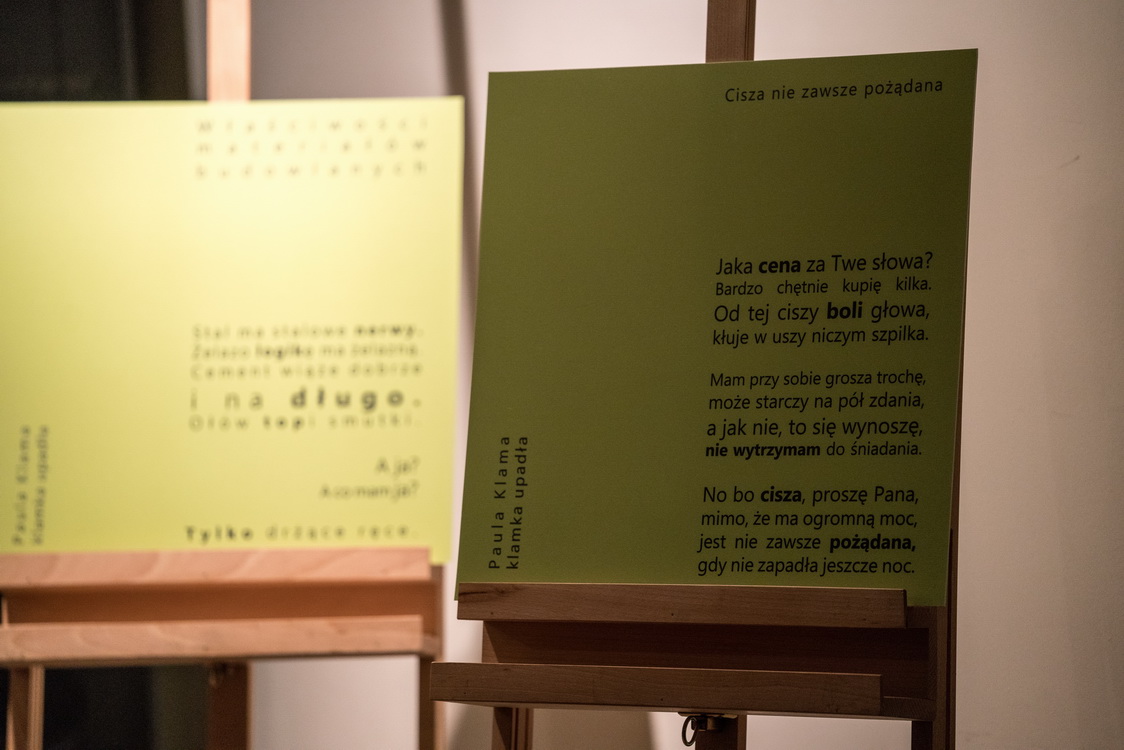 Właściwości
materiałów
budowlanych
Stal ma stalowe nerwy.
Żelazo logikę ma żelazną.
Cement wiąże dobrze
i na długo.
Ołów topi smutki.
A ja?
A co mam ja?
Tylko drżące ręce.
Paula Klama
klamka upadła
Cisza nie zawsze pożądana
Jaka cena za Twe słowa?
Bardzo chętnie kupię kilka.
Od tej ciszy boli głowa,
kłuje w uszy niczym szpilka.
Mam przy sobie grosza trochę,
może starczy na pół zdania,
a jak nie, to się wynoszę,
nie wytrzymam do śniadania.
No bo cisza, proszę Pana,
mimo, że ma ogromną moc,
jest nie zawsze pożądana,
gdy nie zapadła jeszcze noc.
Paula Klama
klamka upadła